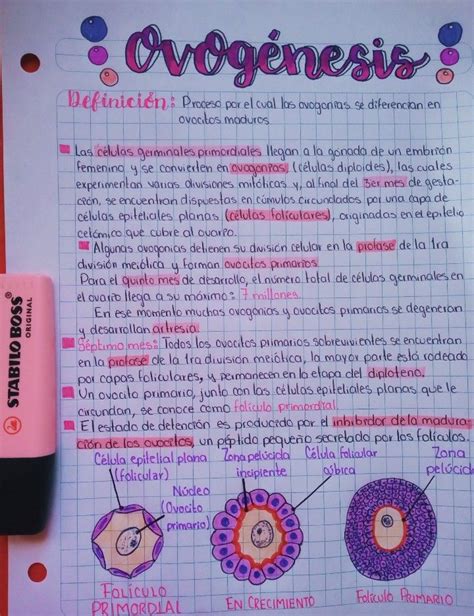 Ovogénesis
Definición: Proceso por el cual las ovogonias se diferencian en
ovocitos maduros.
Las células germinales primordiales llegan a la gónada de un embrión
femenino y se convierten en ovogonias, (células diploides), las cuales
experimentan varias divisiones mitóticas y, al final del 3er mes de gesta-
ción, se encuentran dispuestas en cúmulos circundados por una capa de
células epiteliales planas (células foliculares), originadas en el epitelio
celómico que cubre al ovario.
Algunas ovogonias detienen su división celular en la profase de la 1ra
división meiótica y forman ovocitos primarios.
Para el quinto mes de desarrollo, el número total de células germinales en
el ovario llega a su máximo: 7 millones.
En ese momento muchas ovogonias y ovocitos primarios se degeneran
y desarrollan artresia.
Séptimo mes: Todos los ovocitos primarios sobrevivientes se encuentran
en la profase de la 1ra división meiótica, la mayor parte está rodeada
por capas foliculares, y permanecen en la etapa del diploteno.
Un ovocito primario, junto con las células epiteliales planas que le
circundan, se conoce como folículo primordial.
El estado de detención es producido por el inhibidor de la madura-
ción de los ovocitos, un péptido pequeño secretado por los folículos.
Célula epitelial plana
(folicular)
Núcleo
(Ovocito
primario)
Zona pelúcida
incipiente
Célula folicular
cúbica
Zona
pelúcid
FOLÍCULO
PRIMORDIAL
EN CRECIMIENTO
Folículo PRIMARIO
STABILO BOSS
ORIGINAL